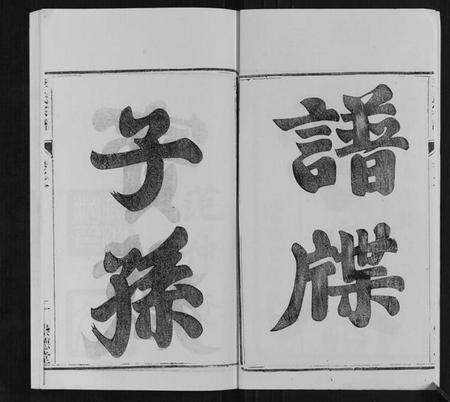 譜牒
子孫